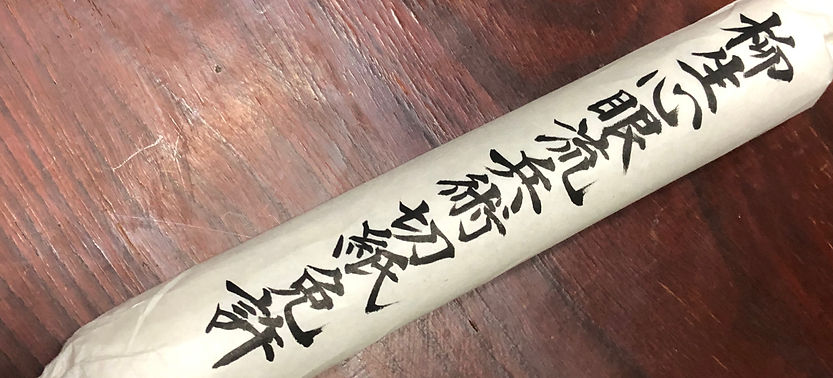 柳生心眼流兵術切紙免許